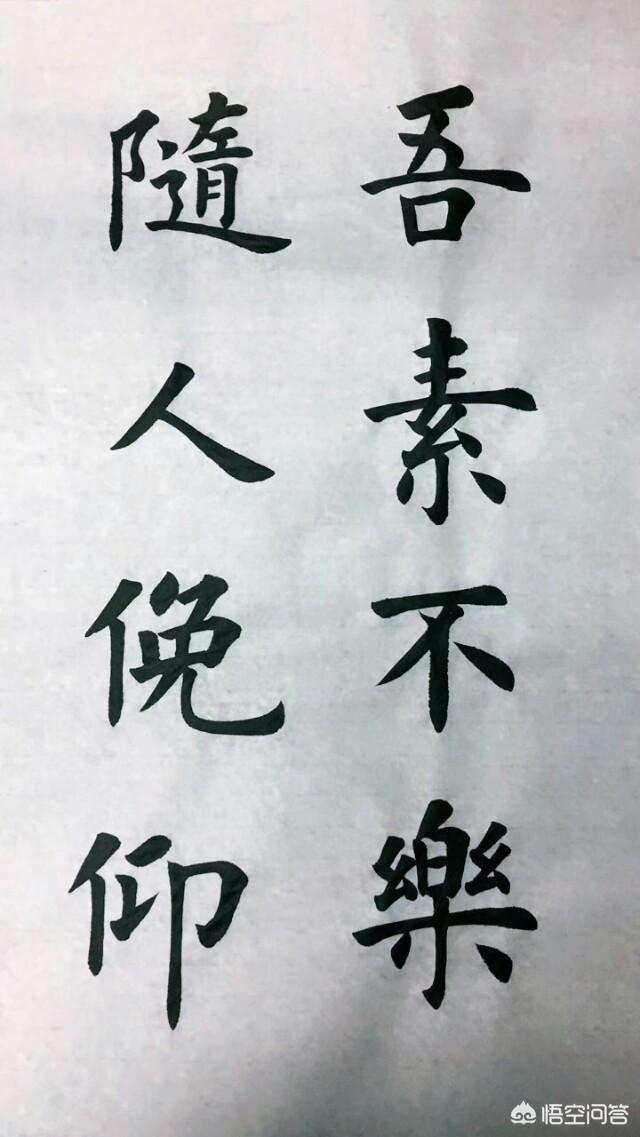 吾素不樂
隨人俛仰
悟空问答